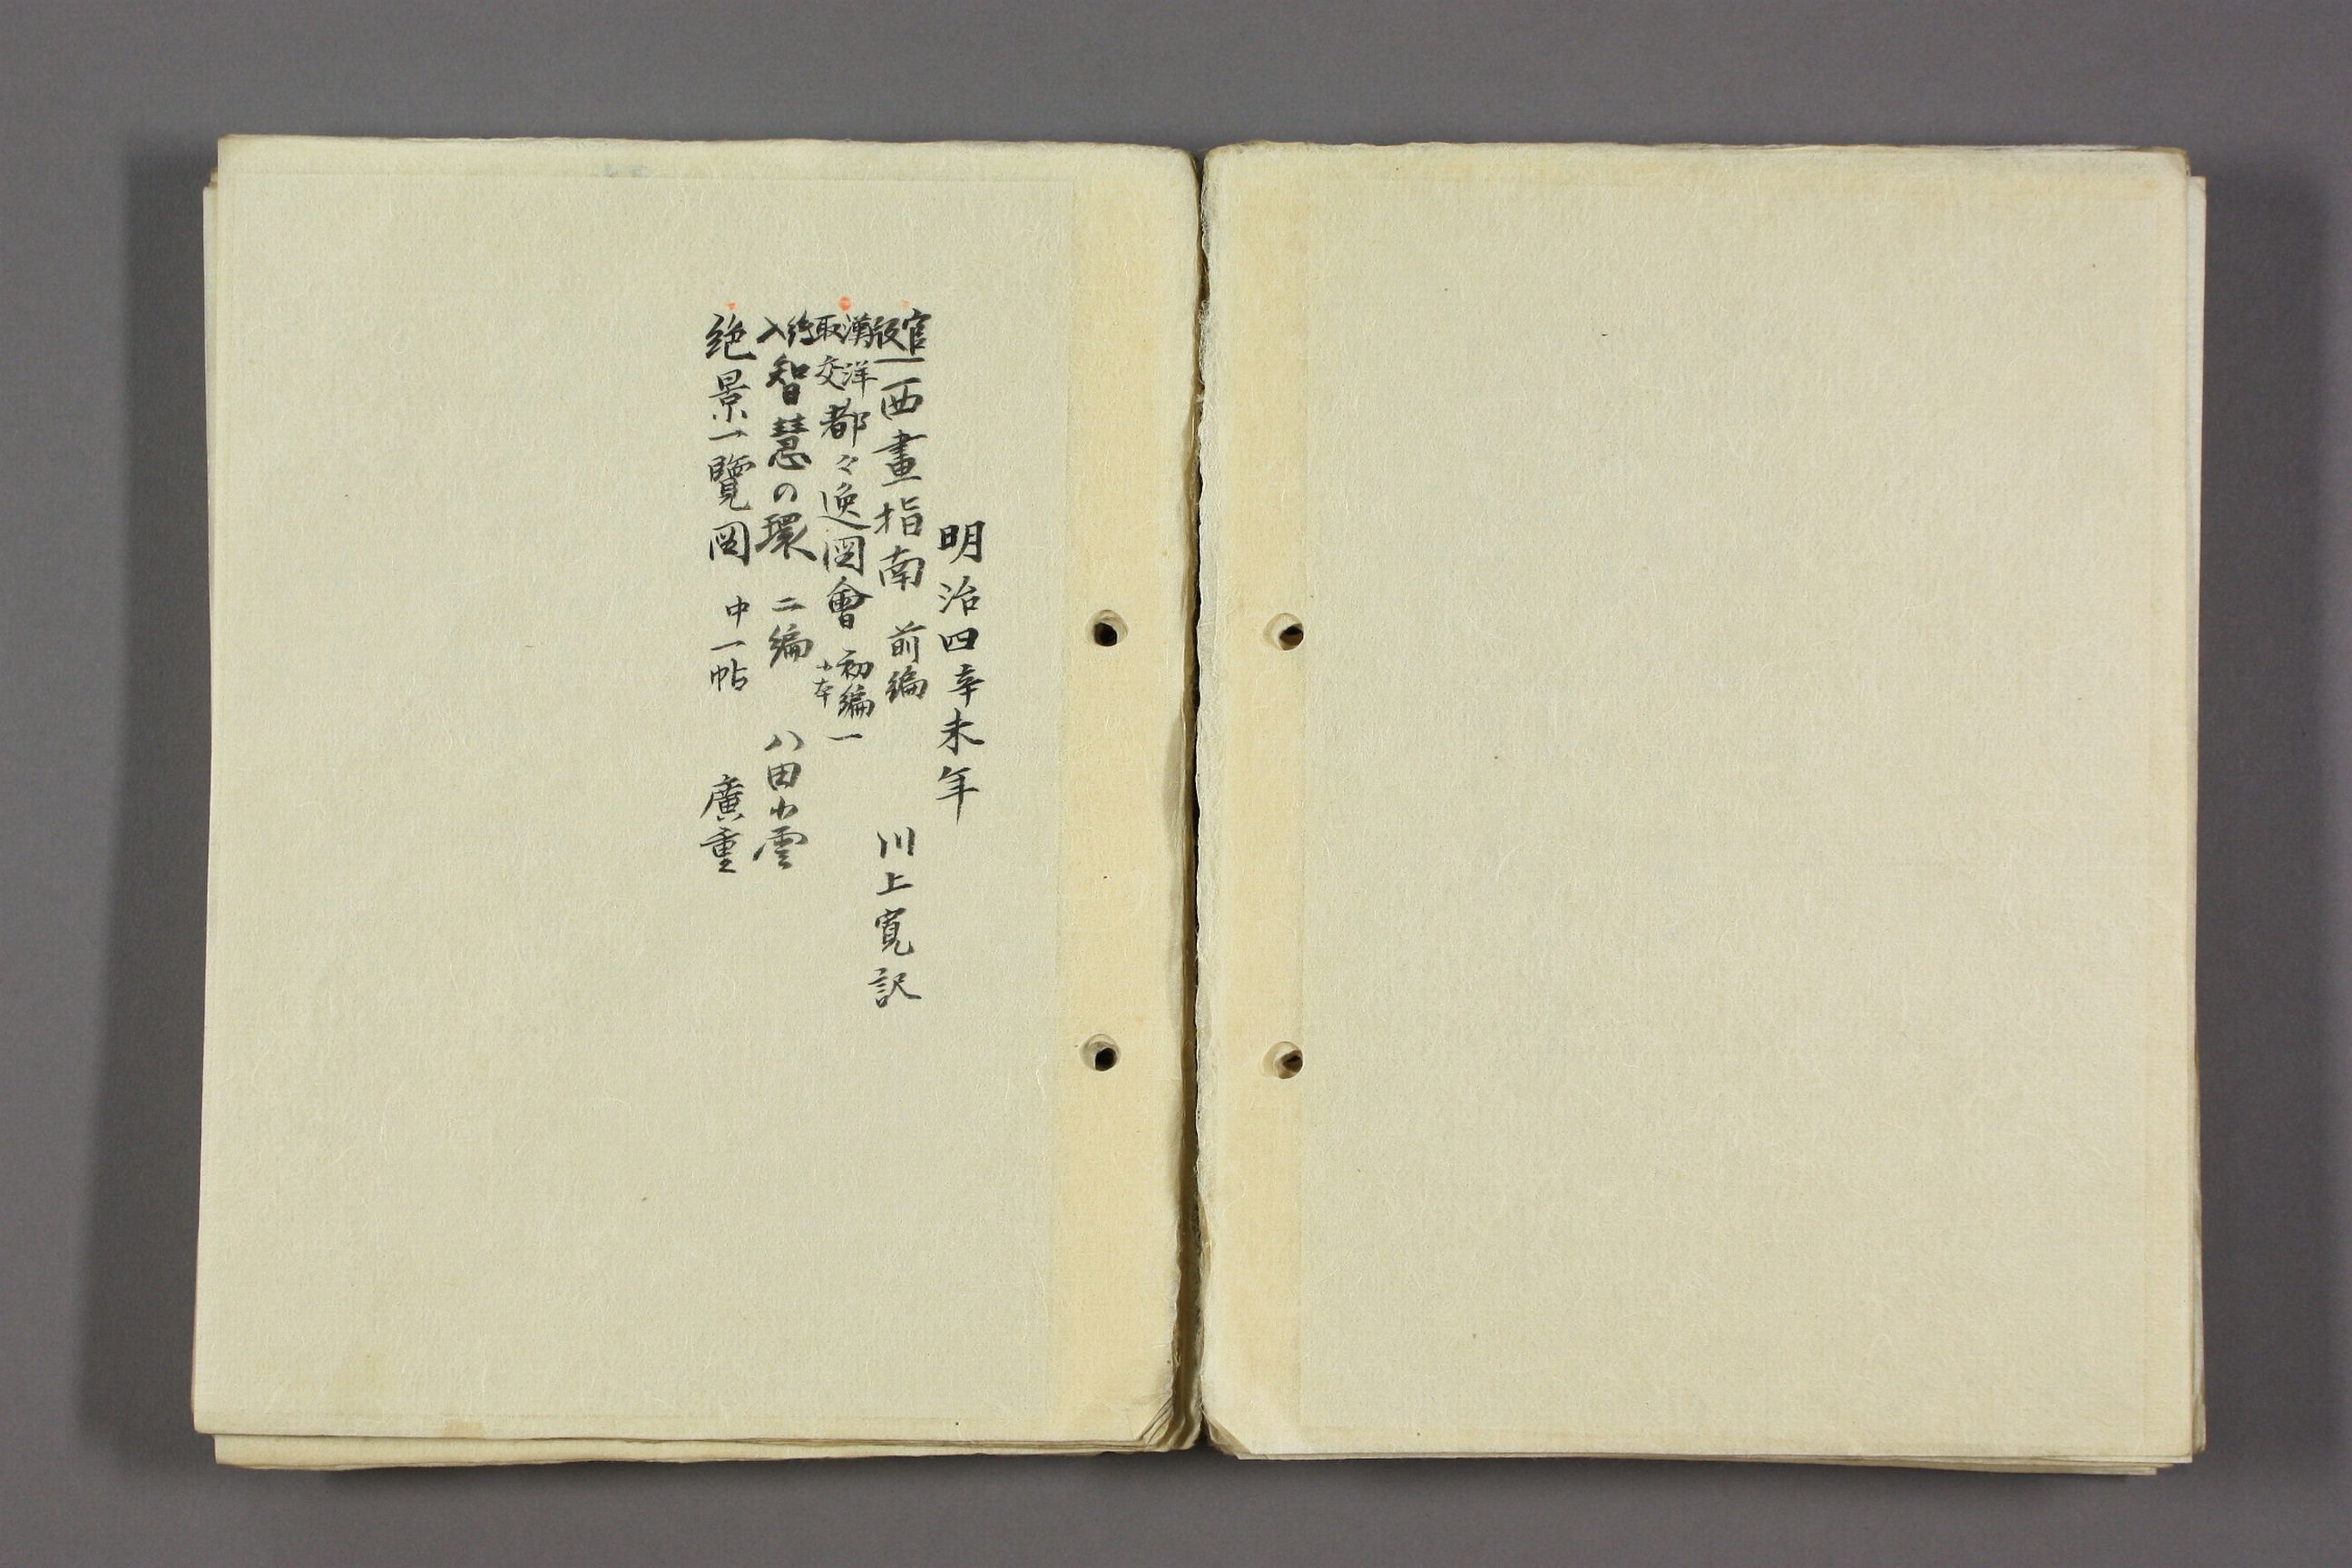 明治四辛未年
官版 西畫指南 前編 川上寛訳
漢洋取交 都々逸図會 初編一 小本
絵入 智慧の環 二編 八田小雲
絶景一覽図 中一帖 廣重